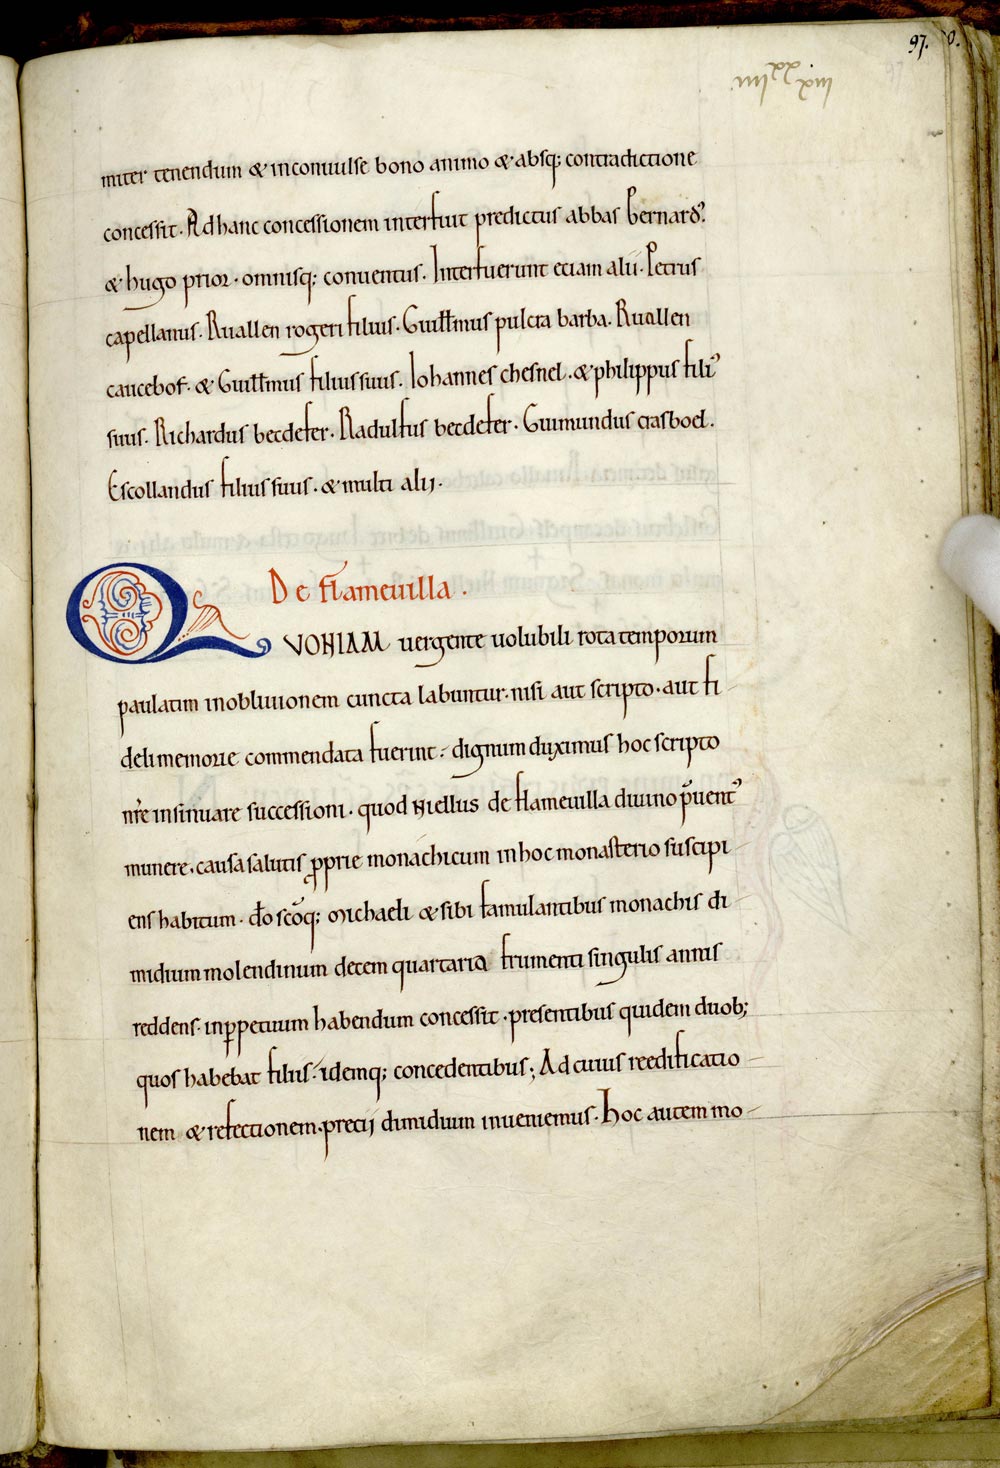 97.
miter tenendum & inconuulse bono animo & absq; contradictione
concessit. Ad hanc concessionem interfuit predictus abbas Bernardꝰ
& hugo prior. omnisq; conuentus. Interfuerunt eciam alii. Petrus
capellanus. Ruallen rogeri filius. Guillmus pulcra barba. Ruallen
caucebof. & Guillmus filius suus. Iohannes chesnel. & philippus filiꝰ
suus. Richardus becdefer. Radulfus becdefer. Guimundus crasbod.
Escollandus filius suus. & multi alij.
De flameuilla.
QVONIAM uergente uolubili rota temporum
paulatim inobliuionem cuncta labuntur. nisi aut scripto. aut fi-
deli memorie commendata fuerint. dignum duximus hoc scripto
nr̄e insinuare successioni. quod Niellus de flameuilla diuino p̄uentꝰ
munere. causa salutis ꝓprie monachicum in hoc monasterio suscipi-
ens habitum. dō scōq; Michaeli & sibi famulantibus monachis di-
midium molendinum decem quartaria frumenti singulis annis
reddens. inꝑpetuum habendum concessit. presentibus quidem duob;
quos habebat filiis. idemq; concedentibus; Ad cuius reedificatio-
nem & refectionem. precij dimidium inueniemus. hoc autem mo-